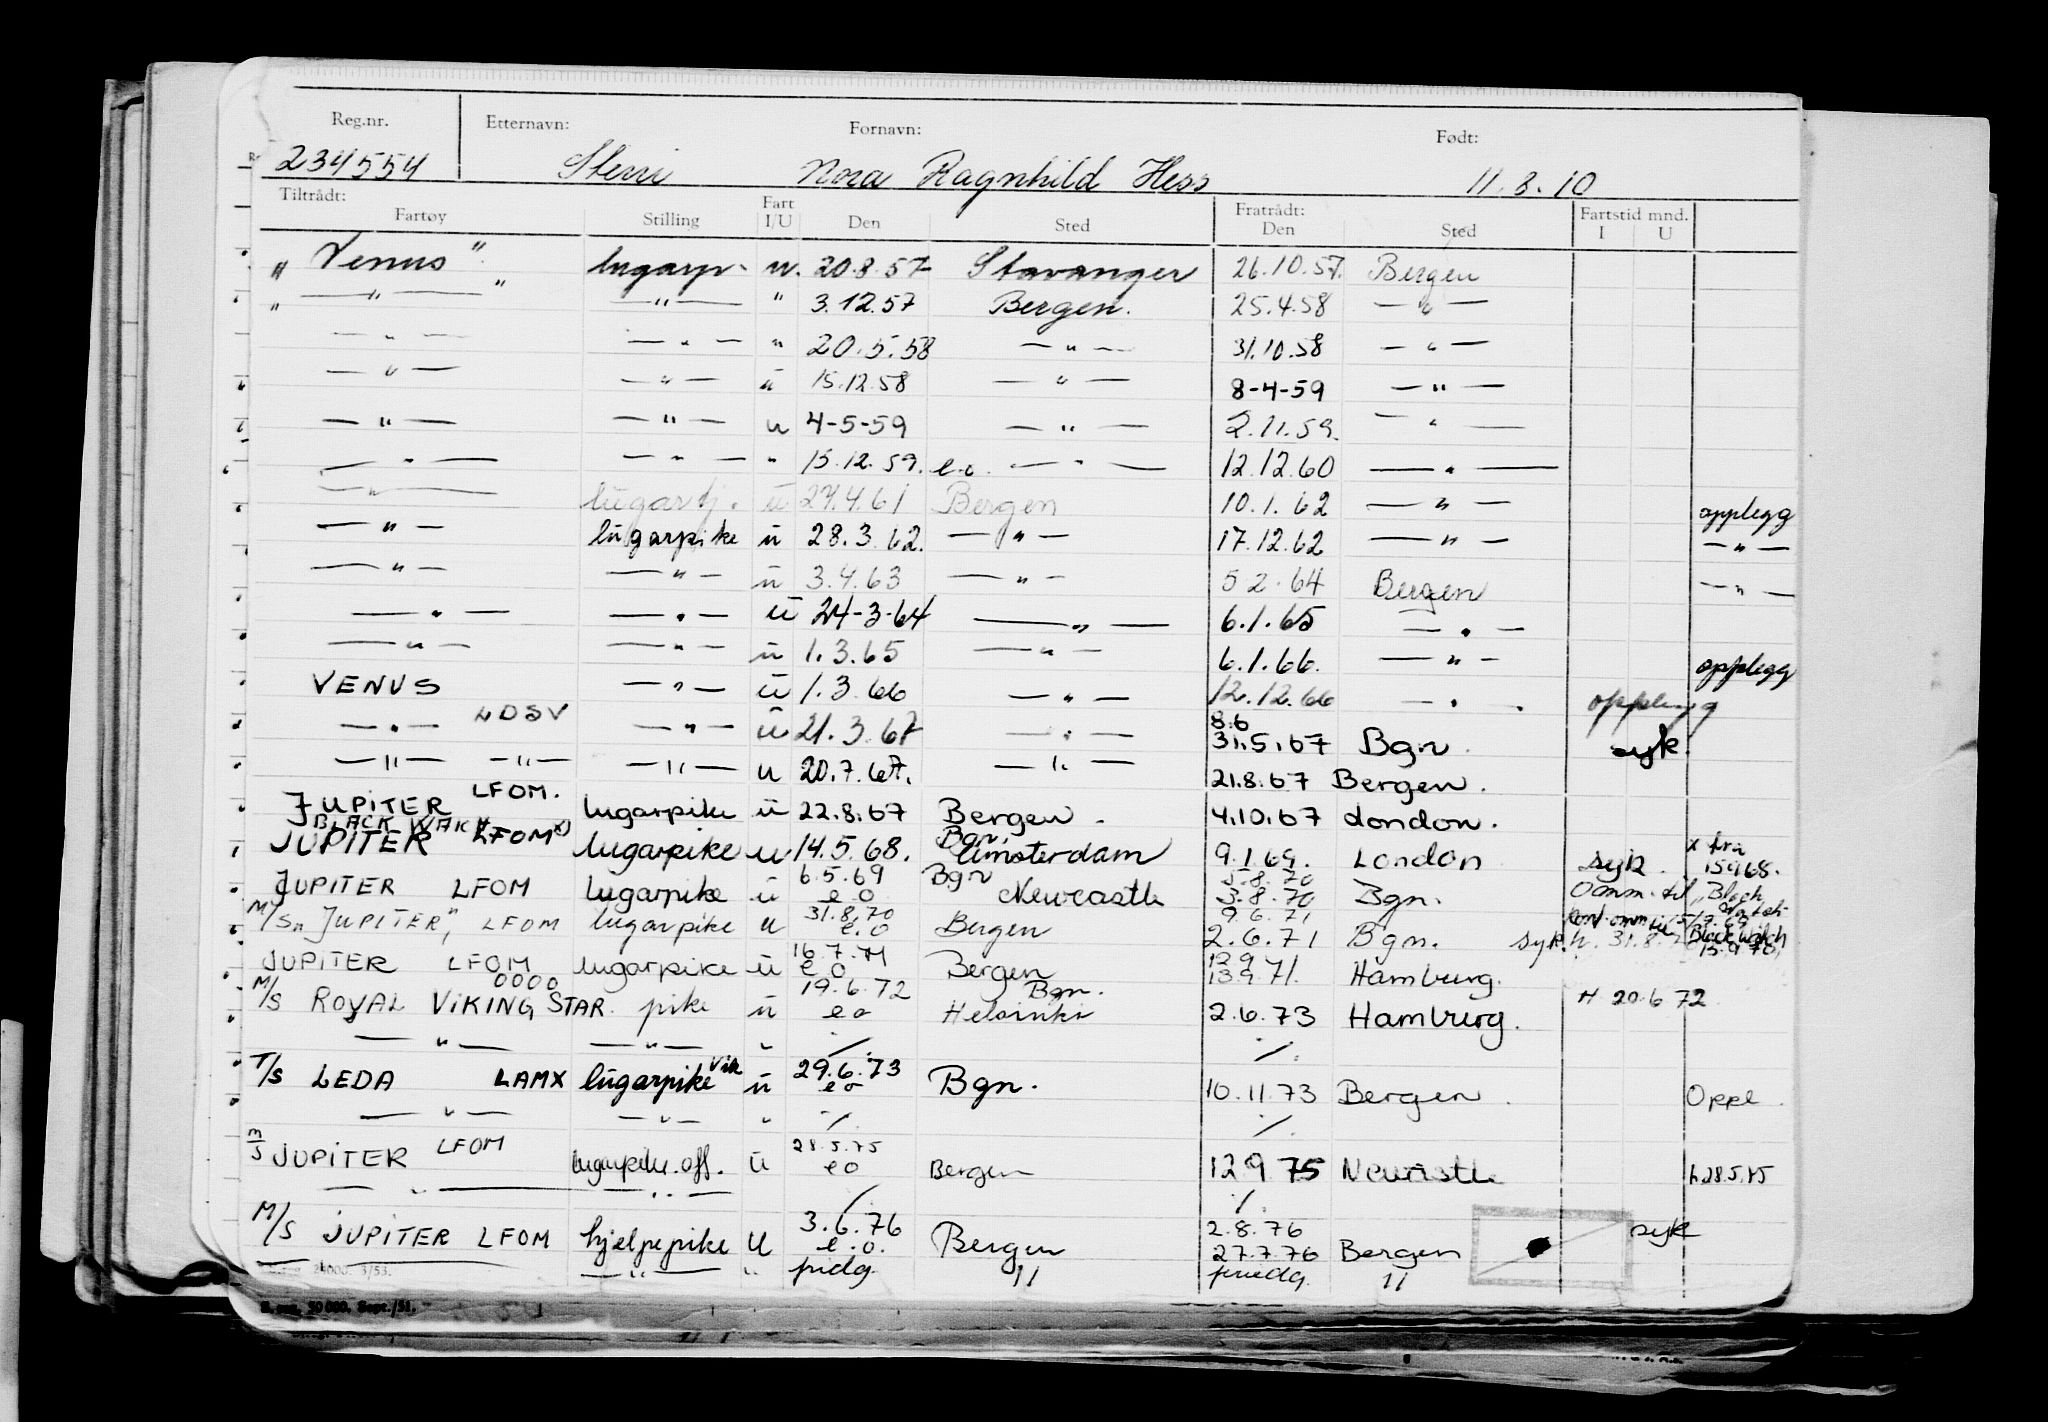 Reg.nr. Etternavn: Fornavn: Født:
234554 Nora Ragnhild Hess 11.8.10
Tiltrådt: Fratrådt: Fartstid mnd.
Fartøy Stilling Fart I/U Den Sted Den Sted I U
"Venus" lugarp. u. 20.8.57 Stavanger 26.10.57. Bergen
" — " — " — " — " 3.12.57 Bergen. 25.4.58 — " —
— " — — " — " 20.5.58 — " — 31.10.58 — " —
— " — — " — u 15.12.58 — " — 8-4-59 — " —
— " — — " — u 4-5-59 — " — 2.11.59. — " —
— " — — " — " 15.12.59. e.o. — " — 12.12.60 — " —
— " — lugarbj. u 27.4.61 Bergen 10.1.62 — " — opplegg
— " — lugarpike u 28.3.62. — " — 17.12.62 — " — — " —
— " — — " — u 3.4.63 — " — 5 2.64 Bergen — " —
— " — — " — u 24-3-64 — " — 6.1.65 — " —
— " — — " — u 1.3.65 — " — 6.1.66. — " — opplegg
VENUS — " — u 1.3.66 — " — 12.12.66 — " . opplegg
— " — LDSV — " — u 21.3.67 — " — 8.6 31.5.67 Bgn. syk.
— " — — " — — " — u 20.7.67. — " — 21.8.67 Bergen.
JUPITER LFOM. lugarpike u 22.8.67 Bergen. 4.10.67 London.
BLACK WATCH Bgn.
JUPITER LFOM x) lugarpike u 14.5.68. Amsterdam 9.1.69. London syk. x fra 15968.
JUPITER LFOM lugarpike u 6.5.69 e o Bgn Newcastle 5.8.70 3.8.70 Bgn. Omm. til "Black Watch
M/S "JUPITER", LFOM lugarpike u 31.8.70 e.o Bergen 9.6.71 2.6.71 Bgn. syk. h. 31.8.7 Black Watch 15.9.70.
JUPITER LFOM lugarpike u 16.7.71 e o Bergen 12.9 13.9.71. Hamburg.
M/S ROYAL VIKING STAR OOOO pike u 19.6.72 e o Bgn. Helsinki 2.6.73 Hamburg. H 20.6 72
— " — — " — " ./. ./.
T/S LEDA LAMX lugarpike vik u 29.6.73 e o Bgn. 10.11.73 Bergen. Oppl.
— " — — " — " ./. ./.
m/s JUPITER LFOM lugarpike.off. u 28.5.75 e o Bergen 12 9 75 Newcastle h 28.5.75
— " — — " — ./. ./.
M/S JUPITER LFOM hjelpepike U 3.6.76 e.o. Bergen 2.8.76 27.7.76 Bergen syk
— " — " 11 11
3/53.
B. reg. 30 000. Sept./51.